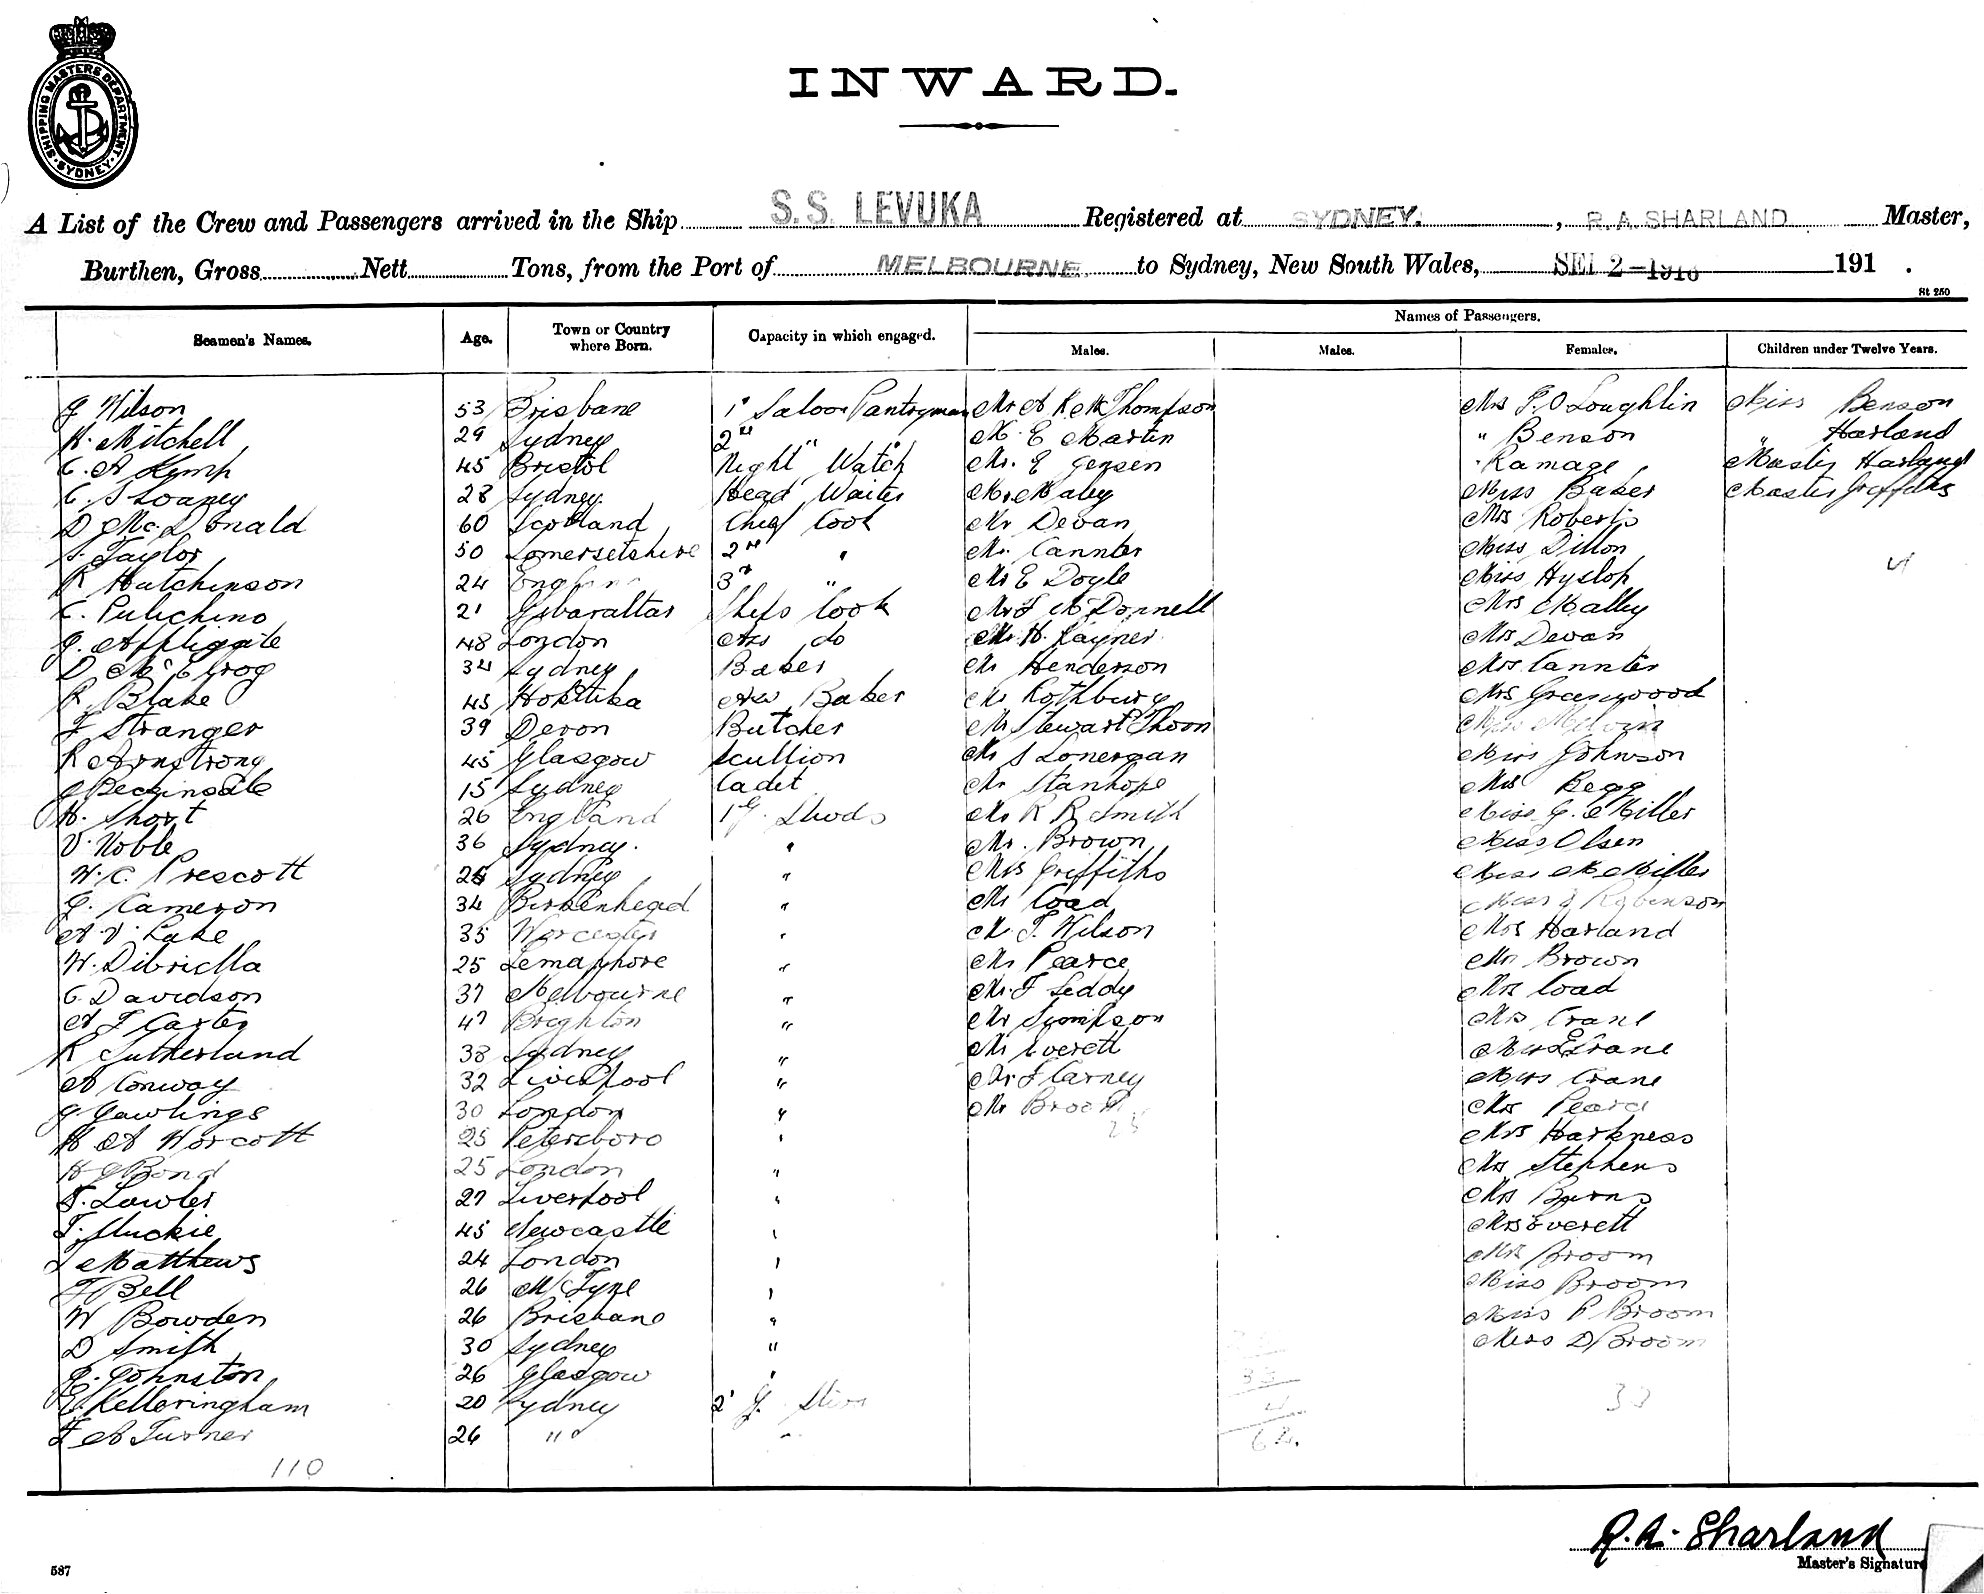 SHIPPING MASTERS DEPARTMENT · SYDNEY ·
INWARD.
A List of the Crew and Passengers arrived in the Ship S.S. LEVUKA Registered at SYDNEY. , R.A. SHARLAND Master,
Burthen, Gross Nett Tons, from the Port of MELBOURNE to Sydney, New South Wales, 2-1916 191 .
St 250
Seamen's Names. Age. Town or Country where Born. Capacity in which engaged. Names of Passengers.
Males. Males. Females. Children under Twelve Years.
J Wilson 53 Brisbane 1st Saloon Pantryman Mr A K McThompson Mrs T. O Loughlin Miss Benson
H. Mitchell 29 Sydney 2nd " M. E Martin " Benson " Harland
C. A Kemp 45 Bristol Night Watch Mr. E Jensen " Ramage Master Harland
C. S Loaney 28 Sydney. Head Waiter Mr Maley Miss Baker Master Griffiths
D. McDonald 60 Scotland Chief Cook Mr Devan Mrs Roberts
S. Taylor 50 Somersetshire 2nd " Mr. Cannter Miss Dillon
R Hutchinson 24 England 3rd " Mr E Doyle Miss Hyslop 4
C. Pulichino 21 Gibaraltar Ships Cook Mr J McDonnell Mrs Malley
J. Applegate 48 London Ass do Mr. H. Rayner Mrs Devan
D McElrog 34 Sydney Baker Mr Henderson Mrs. Cannter
R. Blake 45 Hokitika Ass Baker Mr Rothbury Mrs Greenwood
F Stranger 39 Devon Butcher Mr Stewart Thoon Miss Melvin
R Armstrong 45 Glasgow Scullion Mr S Lonergan Miss Johnson
J Beckinsale 15 Sydney Cadet Mr Stanhope Mrs Begg
H. Short 26 England Mr R R Smith Miss G. Miller
V. Noble 36 Sydney. " Mr. Brown Miss Olsen
W. C. Prescott 26 Sydney " Mrs Griffiths Miss M. Miller
J. Cameron 34 Birkenhead " Mr Coad Miss J Robinson
A. V. Lake 35 Worcester " M. T. Wilson Mrs Harland
W. Dibriella 25 Semaphore " Mr Pearce Mrs Brown
C. Davidson 37 Melbourne " Mr. F Leddy Mrs Coad
A F Carter 47 Brighton " Mr Simpson Mrs Crane
R Sutherland 38 Sydney " Mr Everett Miss E Crane
A Conway 32 Liverpool " Mr J Carney Miss Crane
G Gawlings 30 London " Mr Broom Mrs Pearce
H A Worcott 25 Petersboro " 25 Mrs Harkness
H G Bond 25 London " Mrs Stephens
F. Lawler 27 Liverpool " Mrs Burns
T. Muckie 45 Newcastle " Mrs Everett
L Matthews 24 London " Mrs Broom
F Bell 26 McTyne " Miss Broom
W Bowden 26 Brisbane " Miss P Broom
D Smith 30 Sydney " Miss D Broom
J. Johnston 26 Glasgow " 33
E Kelleringham 20 Sydney 2 4 33
F C Turner 26 " " 62.
110
R.A. Sharland
Master's Signature
587